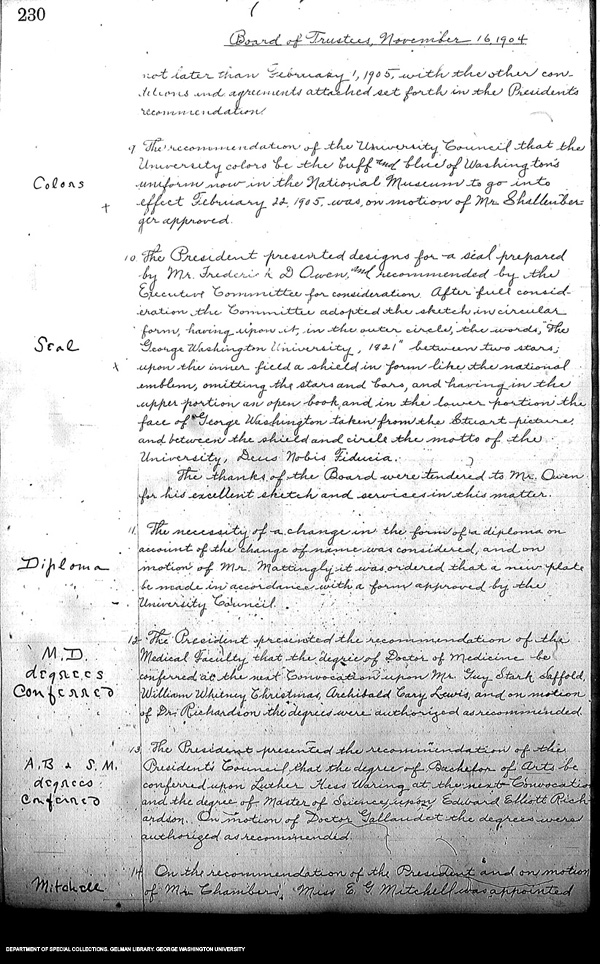 230
Board of Trustees, November 16, 1904
not later than February 1, 1905, with the other con-
ditions and agreements attached set forth in the President's
recommendation.
9. The recommendation of the University Council that the
University colors be the buff and blue of Washington's
uniform now in the National Museum to go into
effect February 22, 1905, was, on motion of Mr. Shallenber-
ger approved.
Colors
10. The President presented designs for a seal prepared
by Mr. Frederick D Owen, and recommended by the
Executive Committee for consideration. After full consid-
eration the Committee adopted the sketch in circular
form, having upon it, in the outer circle, the words, "The
George Washington University, 1821" between two stars;
upon the inner field a shield in form like the national
emblem, omitting the stars and bars, and having in the
upper portion an open book and in the lower portion the
face of George Washington taken from the Stuart picture,
and between the shield and circle the motto of the
University, Deus Nobis Fiducia.
Seal
The thanks of the Board were tendered to Mr. Owen
for his excellent sketch and services in this matter.
11. The necessity of a change in the form of a diploma on
account of the change of name was considered, and on
motion of Mr. Mattingly it was ordered that a new plate
be made in accordance with a form approved by the
University Council.
Diploma
12. The President presented the recommendation of the
Medical Faculty that the degree of Doctor of Medicine be
conferred at the next Convocation upon Mr. Guy Stark Saffold,
William Whitney Christmas, Archibald Cary Lewis, and on motion
of Dr. Richardson the degrees were authorized as recommended.
M.D.
degrees
Conferred
13. The President presented the recommendation of the
President's Council that the degree of Bachelor of Arts be
conferred upon Luther Hess Waring at the next Convocation
and the degree of Master of Science upon Edward Elliott Rich-
ardson. On motion of Doctor Gallaudet the degrees were
authorized as recommended.
A.B & S.M.
degrees
Conferred
14. On the recommendation of the President and on motion
of Mr. Chambers, Miss E. G. Mitchell was appointed
Mitchell
DEPARTMENT OF SPECIAL COLLECTIONS, GELMAN LIBRARY, GEORGE WASHINGTON UNIVERSITY